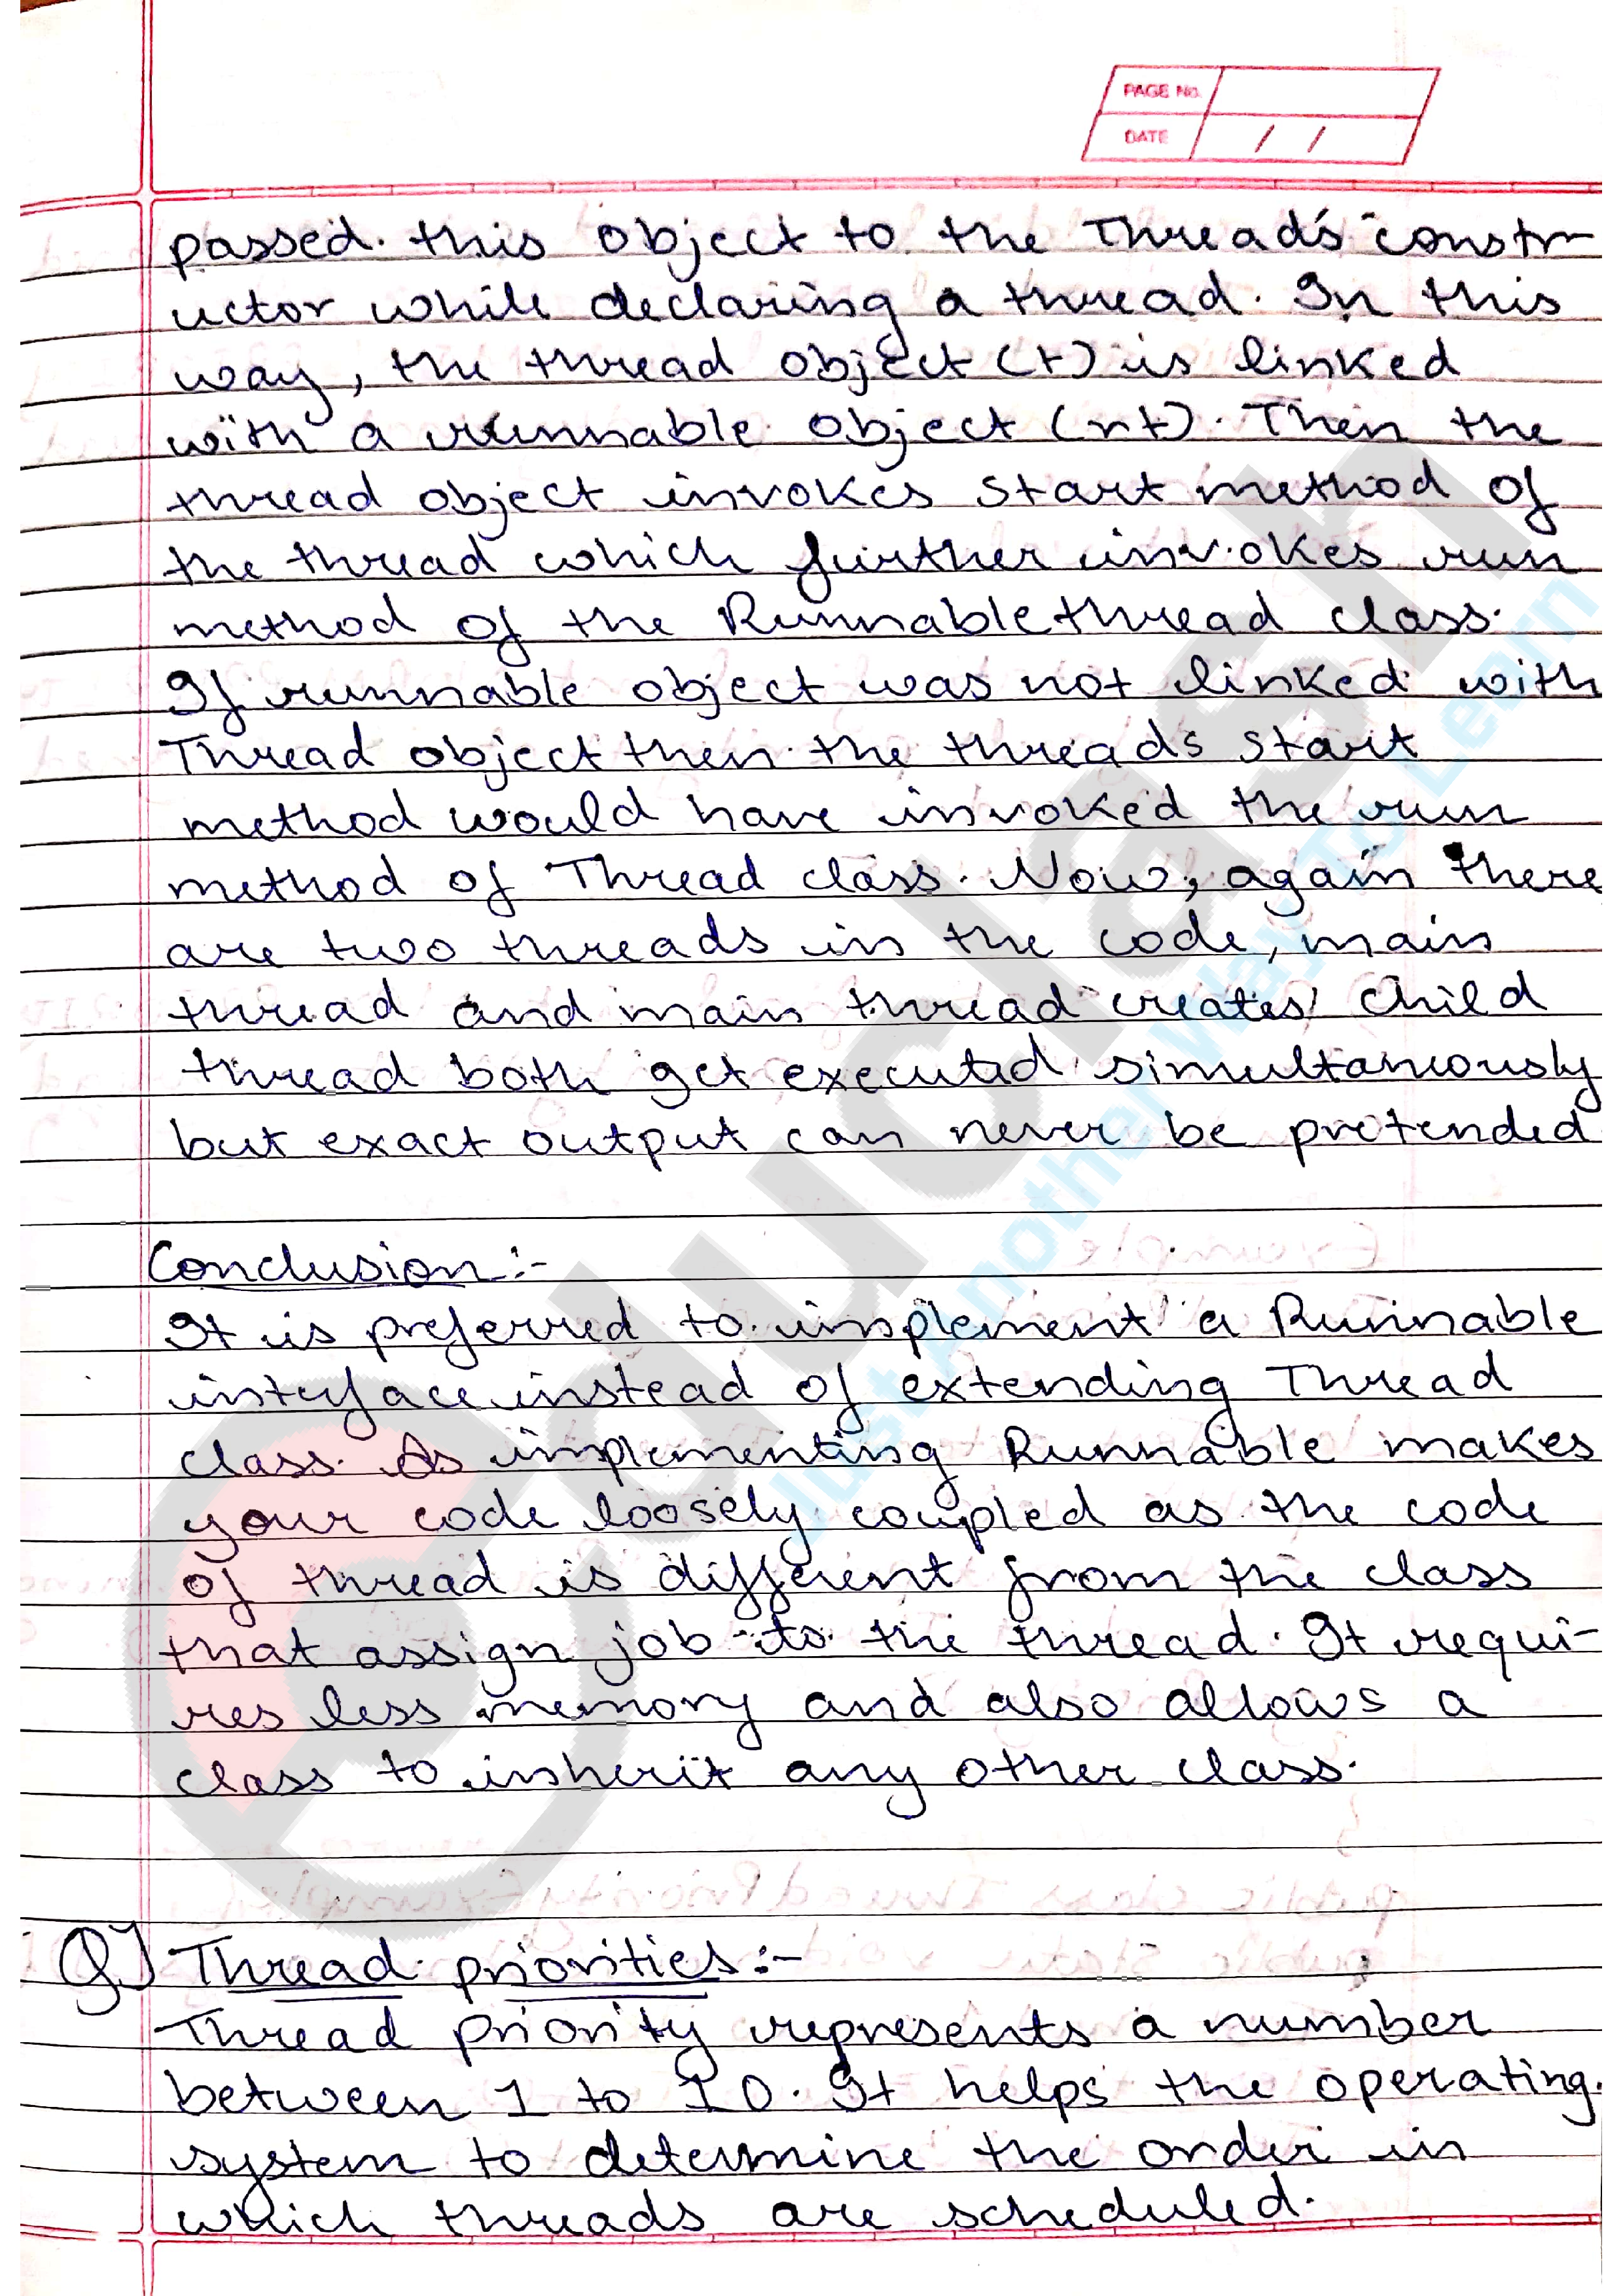 PAGE No.
DATE / /
passed this object to the Thread's constr-
uctor while declaring a thread. In this
way, the thread object (t) is linked
with a runnable object (rt). Then the
thread object invokes start method of
the thread which further invokes run
method of the Runnablethread class.
If runnable object was not linked with
Thread object then the threads start
method would have invoked the run
method of Thread class. Now, again there
are two threads in the code, main
thread and main thread creates child
thread both get executed simultaneously
but exact output can never be pretended
Conclusion:-
It is preferred to implement a Runnable
interface instead of extending Thread
class. As implementing Runnable makes
your code loosely coupled as the code
of thread is different from the class
that assign job to the thread. It requi-
res less memory and also allows a
class to inherit any other class.
Q] Thread priorities:-
Thread priority represents a number
between 1 to 10. It helps the operating
system to determine the order in
which threads are scheduled.
educlash
Just Another Way To Learn